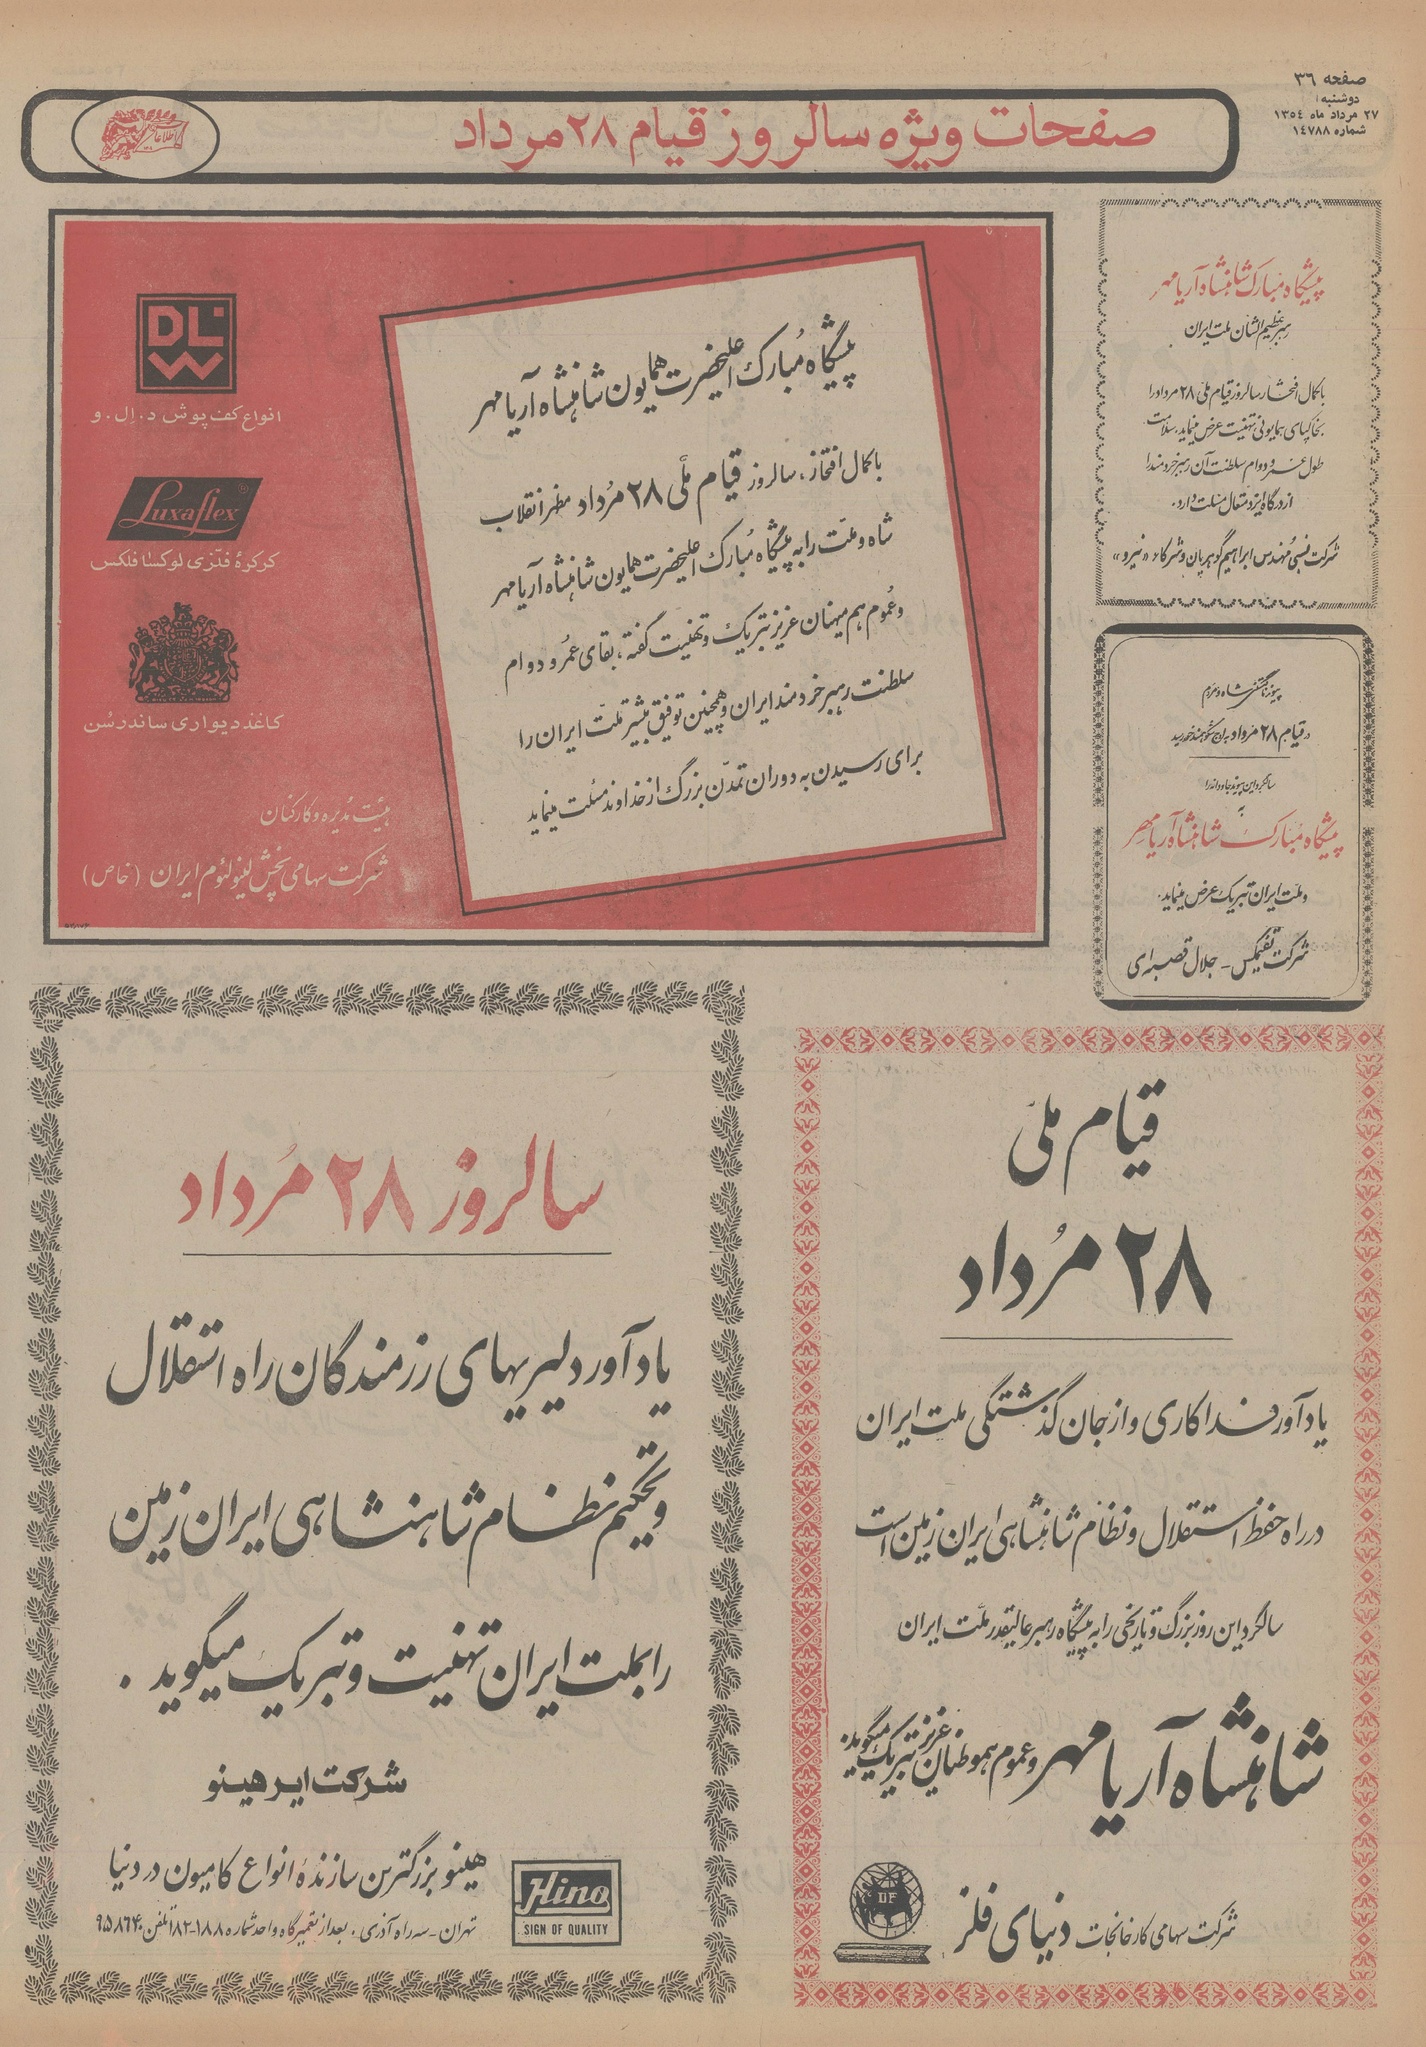 صفحه ۳۶
دوشنبه
۲۷ مرداد ماه ۱۳۵۴
شماره ۱۴۷۸۸
صفحات ویژه سالروز قیام ۲۸ مرداد
اطلاعات
پیشگاه مبارک شاهنشاه آریامهر
رهبر عظیم الشان ملت ایران
با کمال افتخار سالروز قیام ملی ۲۸ مرداد را
بخاکپای همایونی تهنیت عرض مینماید. سلامت
طول عمر و دوام سلطنت آن رهبر خردمند را
از درگاه ایزد متعال مسئلت دارد.
شرکت نسبی مهندس ابراهیم گوهریان و شرکاء «نیرو»
پیوند ناگسستنی شاه و مردم
در قیام ۲۸ مرداد به اوج شکوهمند خود رسید
سالگرد این پیوند جاودانه را
به
پیشگاه مبارک شاهنشاه آریامهر
و ملت ایران تبریک عرض مینماید.
شرکت تفیمکس - جلال قصبه‌ای
پیشگاه مبارک اعلیحضرت همایون شاهنشاه آریامهر
با کمال افتخار، سالروز قیام ملی ۲۸ مرداد مظهر انقلاب
شاه و ملت را به پیشگاه مبارک اعلیحضرت همایون شاهنشاه آریامهر
و عموم هم میهنان عزیز تبریک و تهنیت گفته، بقای عمر و دوام
سلطنت رهبر خردمند ایران و همچنین توفیق بیشتر ملت ایران را
برای رسیدن به دوران تمدن بزرگ از خداوند مسئلت مینماید
DLW
انواع کف پوش د.إل.و
Luxaflex
کرکرهٔ فلزی لوکسافلکس
کاغذ دیواری ساندرسن
هیئت مدیره و کارکنان
شرکت سهامی پخش لینولئوم ایران (خاص)
قیام ملی
۲۸ مرداد
یادآور فداکاری و از جان گذشتگی ملت ایران
در راه حفظ استقلال و نظام شاهنشاهی ایران زمین است
سالگرد این روز بزرگ و تاریخی را به پیشگاه رهبر عالیقدر ملت ایران
شاهنشاه آریامهر و عموم هموطنان عزیز تبریک میگوید.
DF
شرکت سهامی کارخانجات دنیای فلز
سالروز ۲۸ مرداد
یادآور دلیریهای رزمندگان راه استقلال
و تحکیم نظام شاهنشاهی ایران زمین
را بملت ایران تهنیت و تبریک میگوید.
شرکت ایرهینو
هینو بزرگترین سازندهٔ انواع کامیون در دنیا
تهران - سه راه آذری، بعد از تعمیرگاه واحد شماره ۱۸۸-۱۸۲ تلفن ۹۵۸۶۴۰
Hino
SIGN OF QUALITY